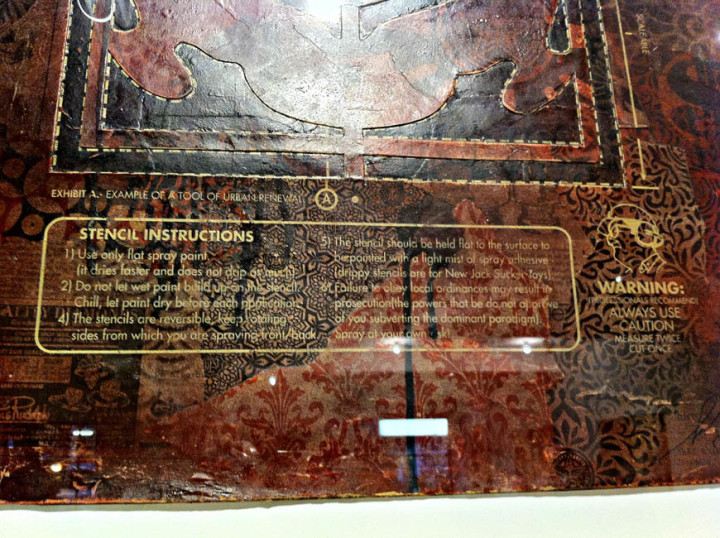 EXHIBIT A.- EXAMPLE OF A TOOL OF URBAN RENEWAL
A
STENCIL INSTRUCTIONS
1) Use only flat spray paint
(it dries faster and does not drip as much)
2) Do not let wet paint build up on the stencil.
Chill, let paint dry before each application.
4) The stencils are reversible, keep rotating
sides from which you are spraying front/back.
5) The stencil should be held flat to the surface to
be painted with a light mist of spray adhesive
(drippy stencils are for New Jack Sucka-Toys).
6) Failure to obey local ordinances may result in
prosecution(the powers that be do not approve
of you subverting the dominant paradigm).
Spray at your own risk.
WARNING:
(PROFESSIONALS RECOMMEND)
ALWAYS USE
CAUTION
MEASURE TWICE
CUT ONCE